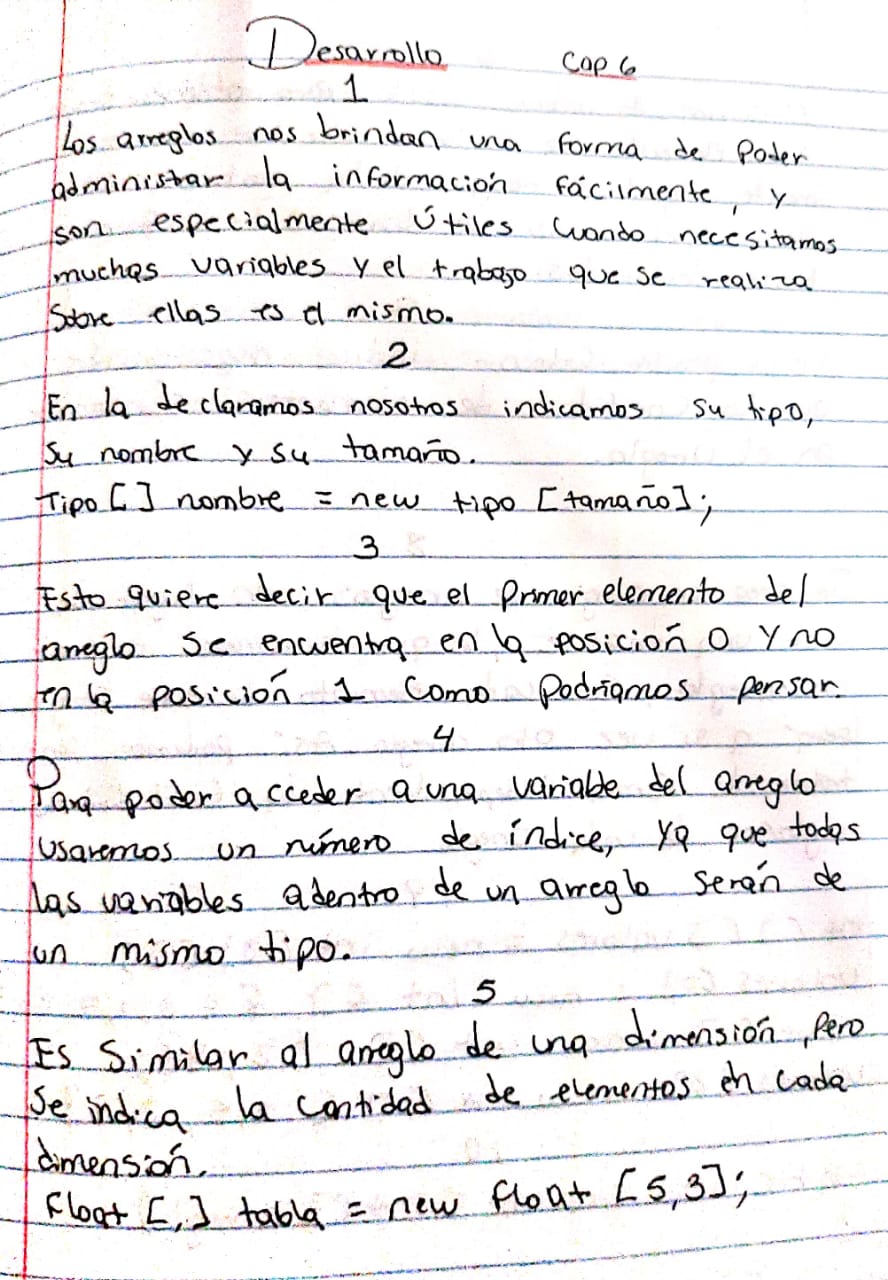 Desarrollo Cap 6
1
Los arreglos nos brindan una forma de Poder
administrar la información fácilmente, y
son especialmente Útiles cuando necesitamos
muchas variables y el trabajo que se realiza
Sobre ellas es el mismo.
2
En la declaramos nosotros indicamos su tipo,
Su nombre y su tamaño.
Tipo [ ] nombre = new tipo [tamaño];
3
Esto quiere decir que el Primer elemento del
arreglo se encuentra en la posición 0 Y no
en la posición 1 Como Podríamos pensar.
4
Para poder acceder a una variable del arreglo
usaremos un número de índice, ya que todas
las variables adentro de un arreglo serán de
un mismo tipo.
5
Es Similar al arreglo de una dimensión, Pero
Se indica la cantidad de elementos en cada
dimensión.
Float [,] tabla = new float [5,3];